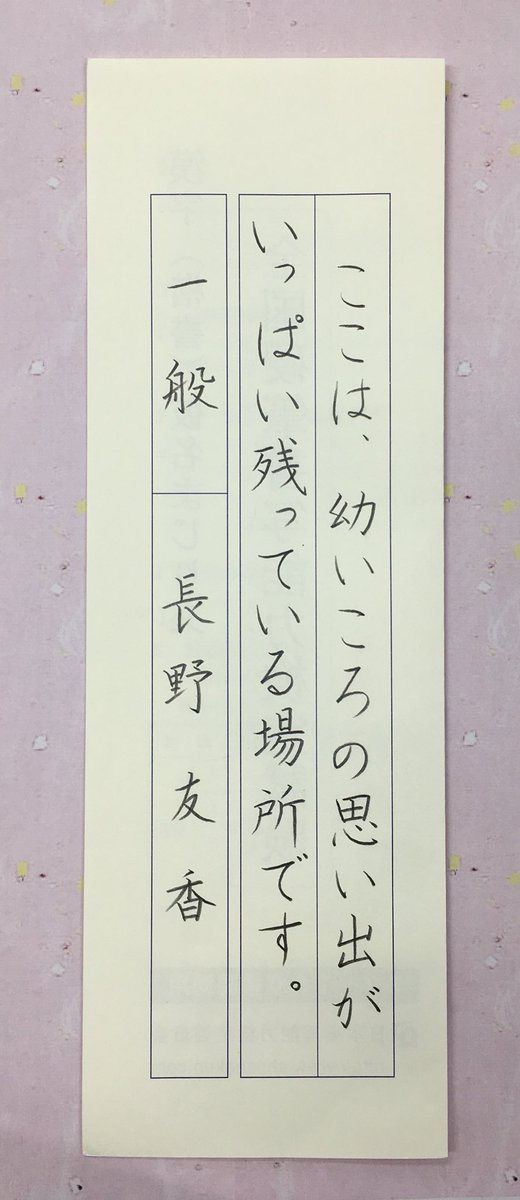 ここは、幼いころの思い出が
いっぱい残っている場所です。
一般 長野 友香